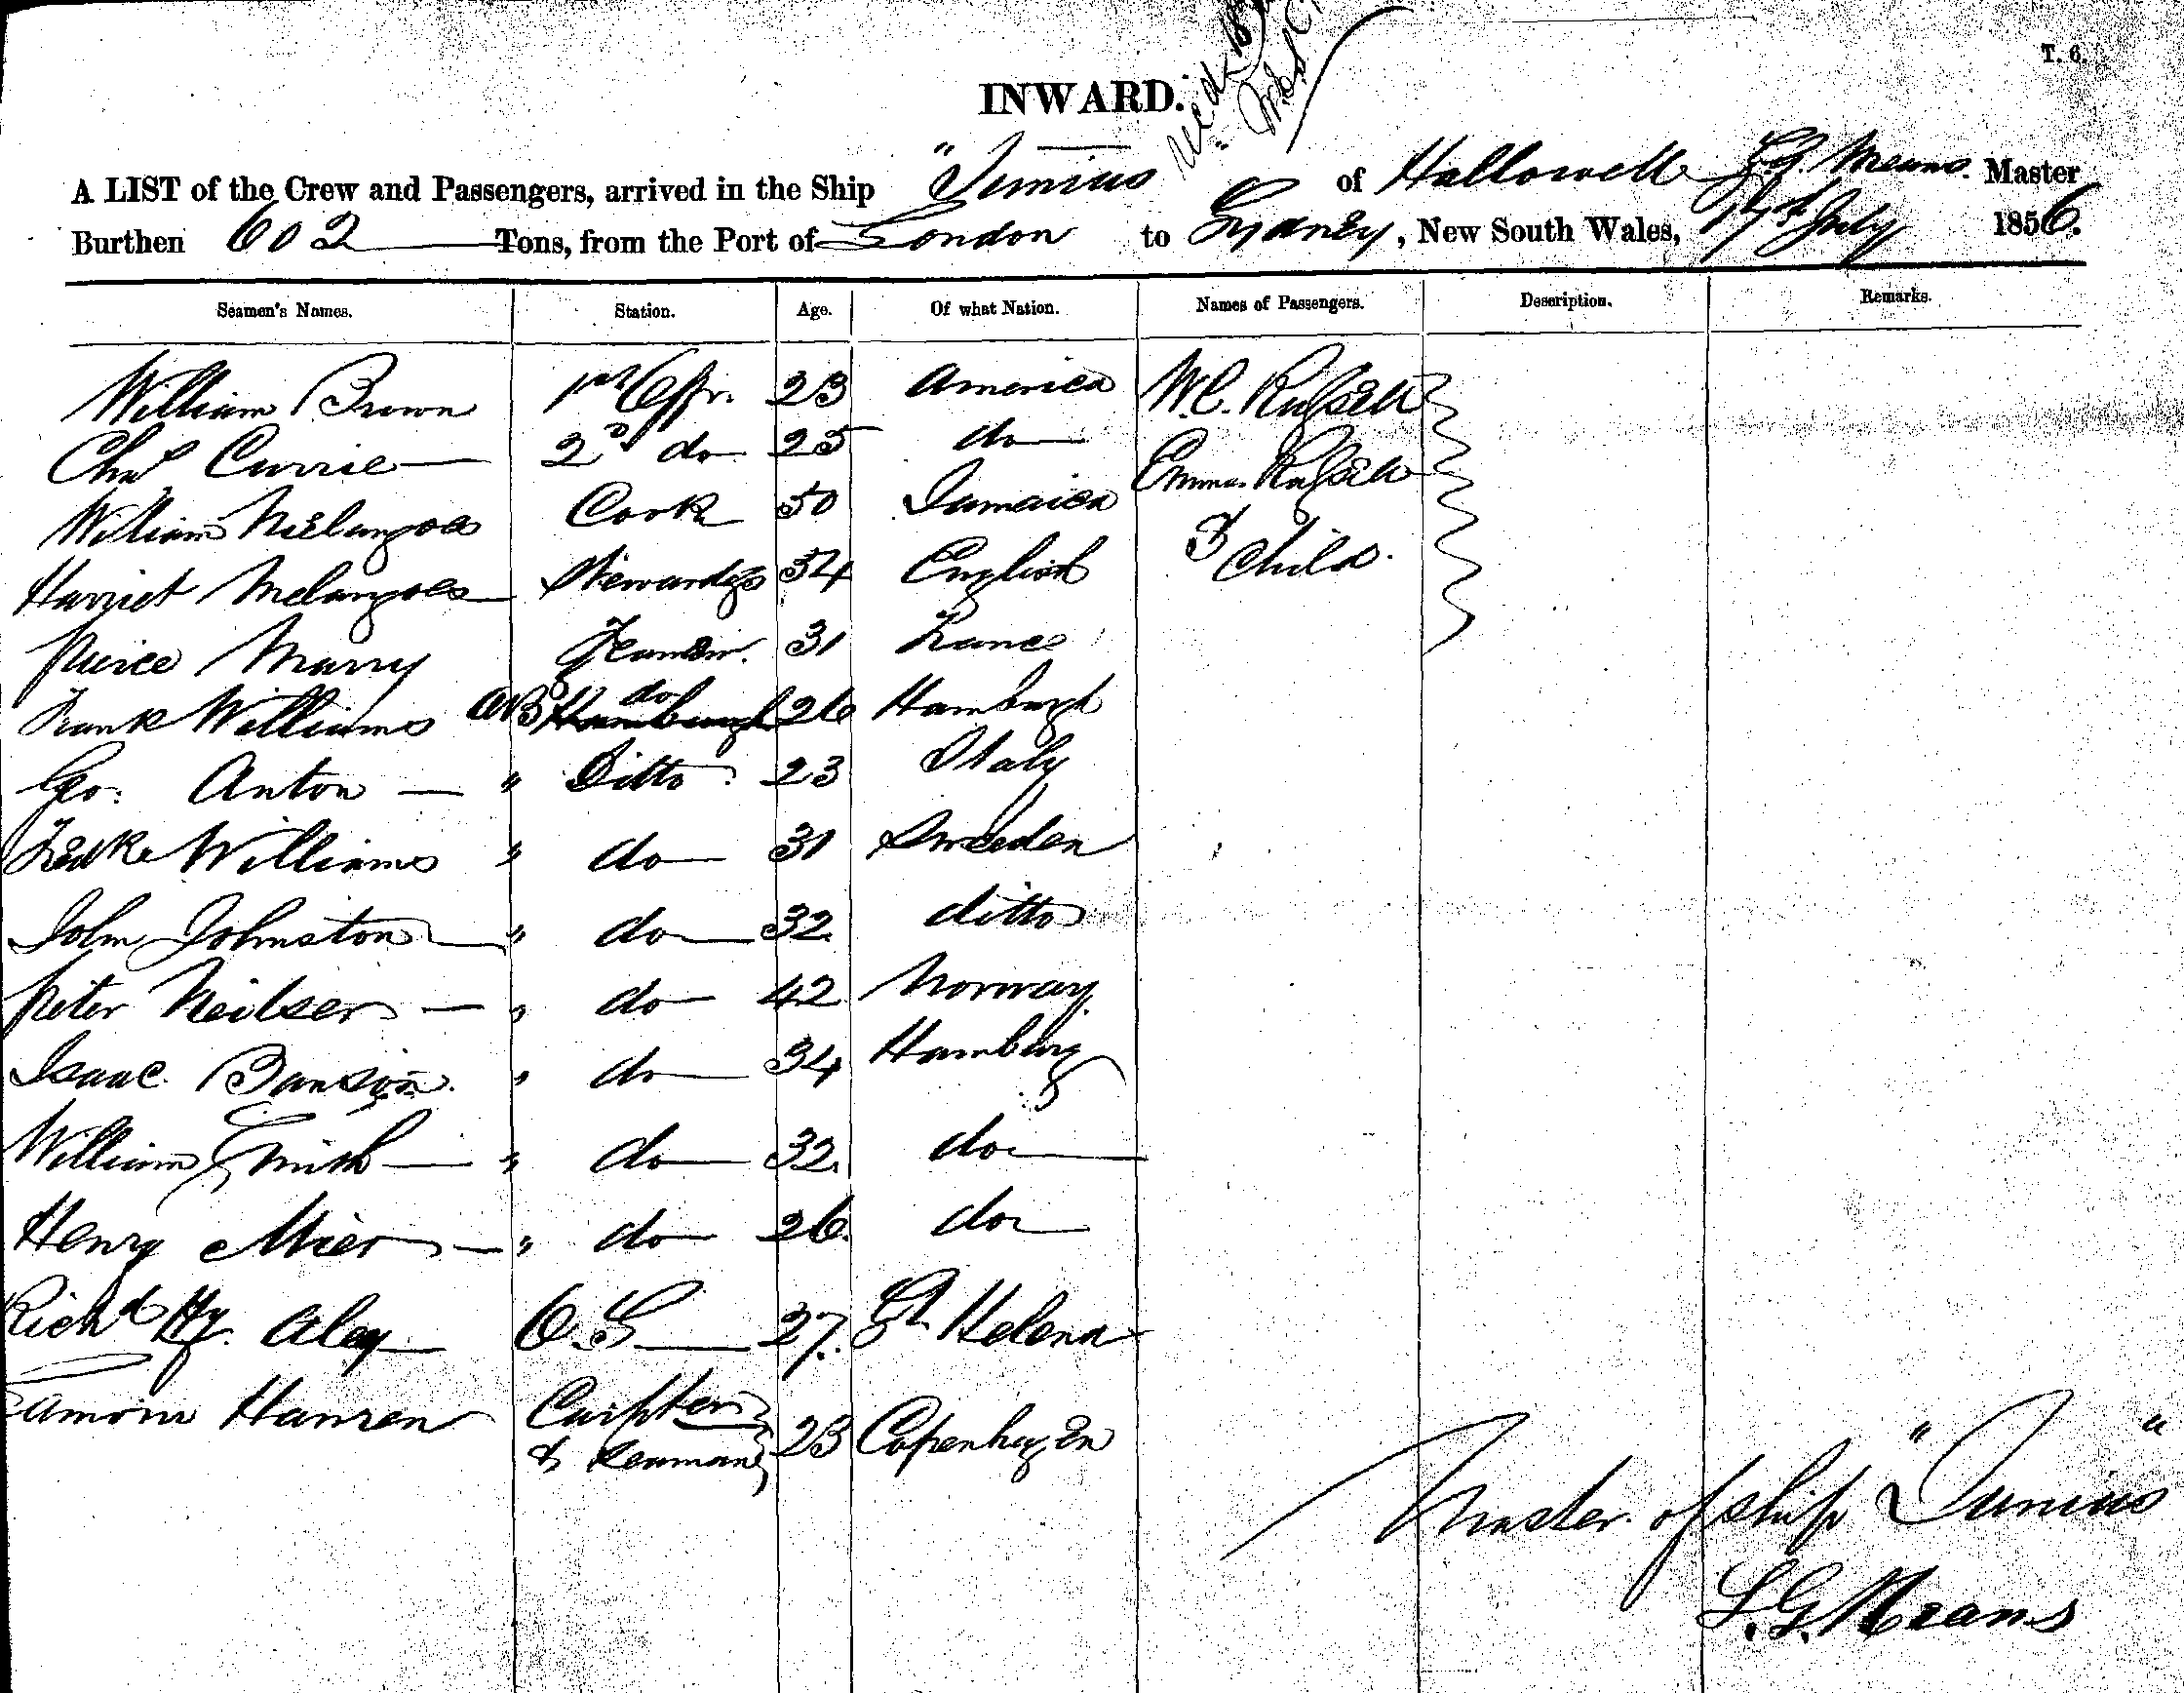 T. 6.
INWARD.
A LIST of the Crew and Passengers, arrived in the Ship "Junius" of Hallowell L.G. Means. Master
Burthen 602 Tons, from the Port of London to Sydney, New South Wales, 17th July 1856.
Seamen's Names. Station. Age. Of what Nation. Names of Passengers. Description. Remarks.
William Brown 1st Offr. 23 America W.C. Russell
Chas Currie 2d do 25 do Emma Russell
William Cook 50 Jamaica & Child.
Harriet Stewardess 34 English
Peirce Marry Seaman. 31 France
Frank Williams AB do 26 Hamburgh
Geo: Anton — " Ditto 23 Italy
Fredke Williams " do 31 Sweeden
John Johnston " do 32 ditto
Peter Neilsen — " do 42 Norway.
Isaac " do 34 Hamburg
William Smith — " do 32 do
Henry Mier — " do 26 do
Richd Hy. Aley O.S 27. St Helena
Hansen Carpter & Seaman 23 Copenhagen
Master of ship "Junius"
L.G. Means